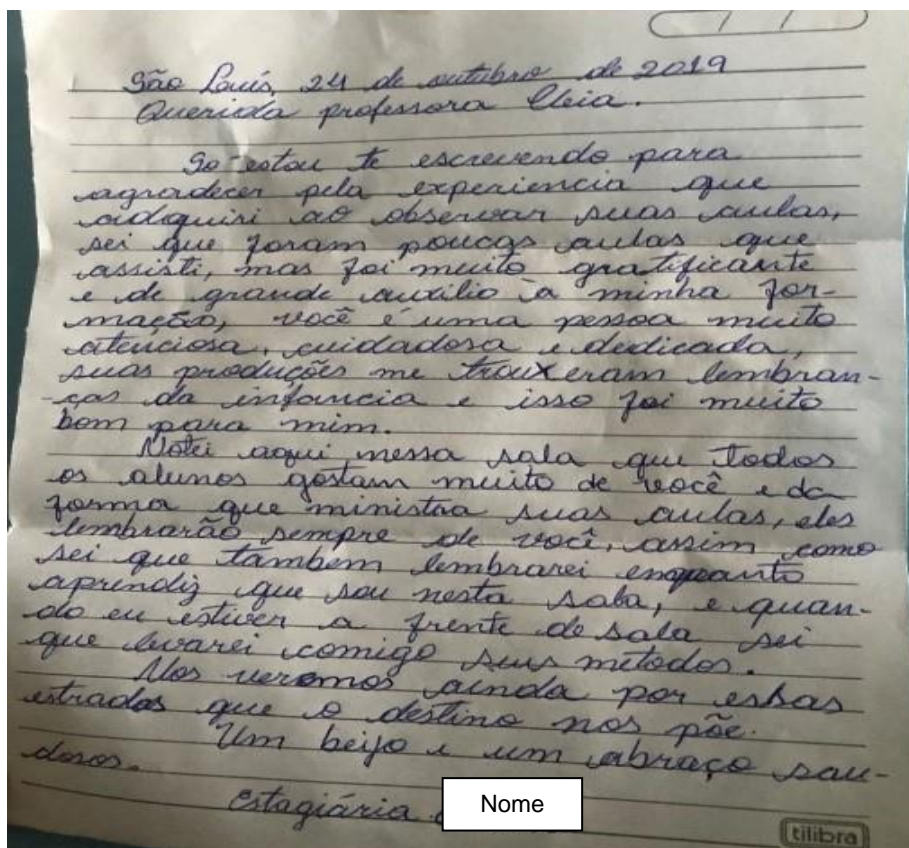 São Luís, 24 de outubro de 2019
Querida professora Cleia.
So estou te escrevendo para
agradecer pela experiencia que
adiquiri ao observar suas aulas,
sei que foram poucas aulas que
assisti, mas foi muito gratificante
e de grande auxilio à minha for-
mação, você é uma pessoa muito
atenciosa, cuidadosa e dedicada,
suas produções me trouxeram lembran-
-ças da infancia e isso foi muito
bom para mim.
Notei aqui nessa sala que todos
os alunos gostam muito de você e da
forma que ministra suas aulas, eles
lembrarão sempre de você, assim como
sei que tambem lembrarei enquanto
aprendiz que sou nesta sala, e quan-
do eu estiver a frente de sala sei
que levarei comigo seus métodos.
Nos veremos ainda por essas
estradas que o destino nos põe.
Um beijo e um abraço sau-
dosos.
Estagiária Nome
tilibra